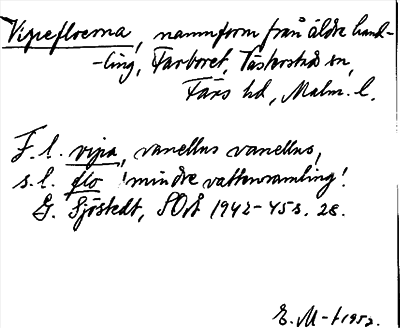 Vipefloerna, namnform från äldre hand-
-ling, Farboret, Västerstad sn,
Färs hd, Malm. l.
F. l. vipa, vanellus vanellus,
s. l. flo 'mindre vattensamling'.
G. Sjöstedt, SOÅ 1942-45 s. 28.
E. M-t 1952.